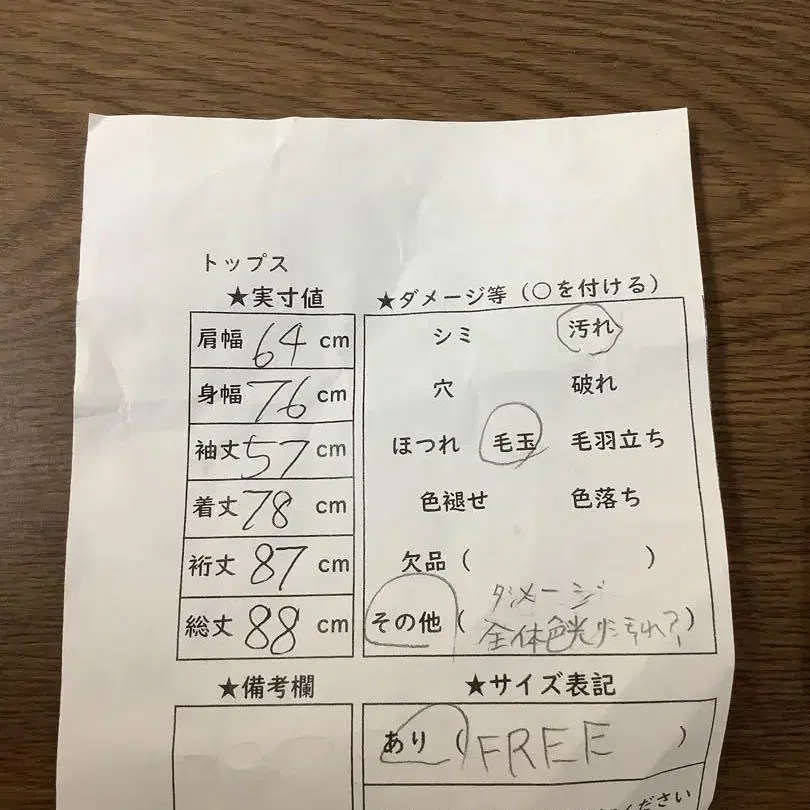 トップス
★実寸値
肩幅 64 cm
身幅 76 cm
袖丈 57 cm
着丈 78 cm
裄丈 87 cm
総丈 88 cm
★備考欄
★ダメージ等（○を付ける）
シミ 汚れ
穴 破れ
ほつれ 毛玉 毛羽立ち
色褪せ 色落ち
欠品（ ）
ダメージ
その他（全体色 汚れ？）
★サイズ表記
あり（FREE）
ください